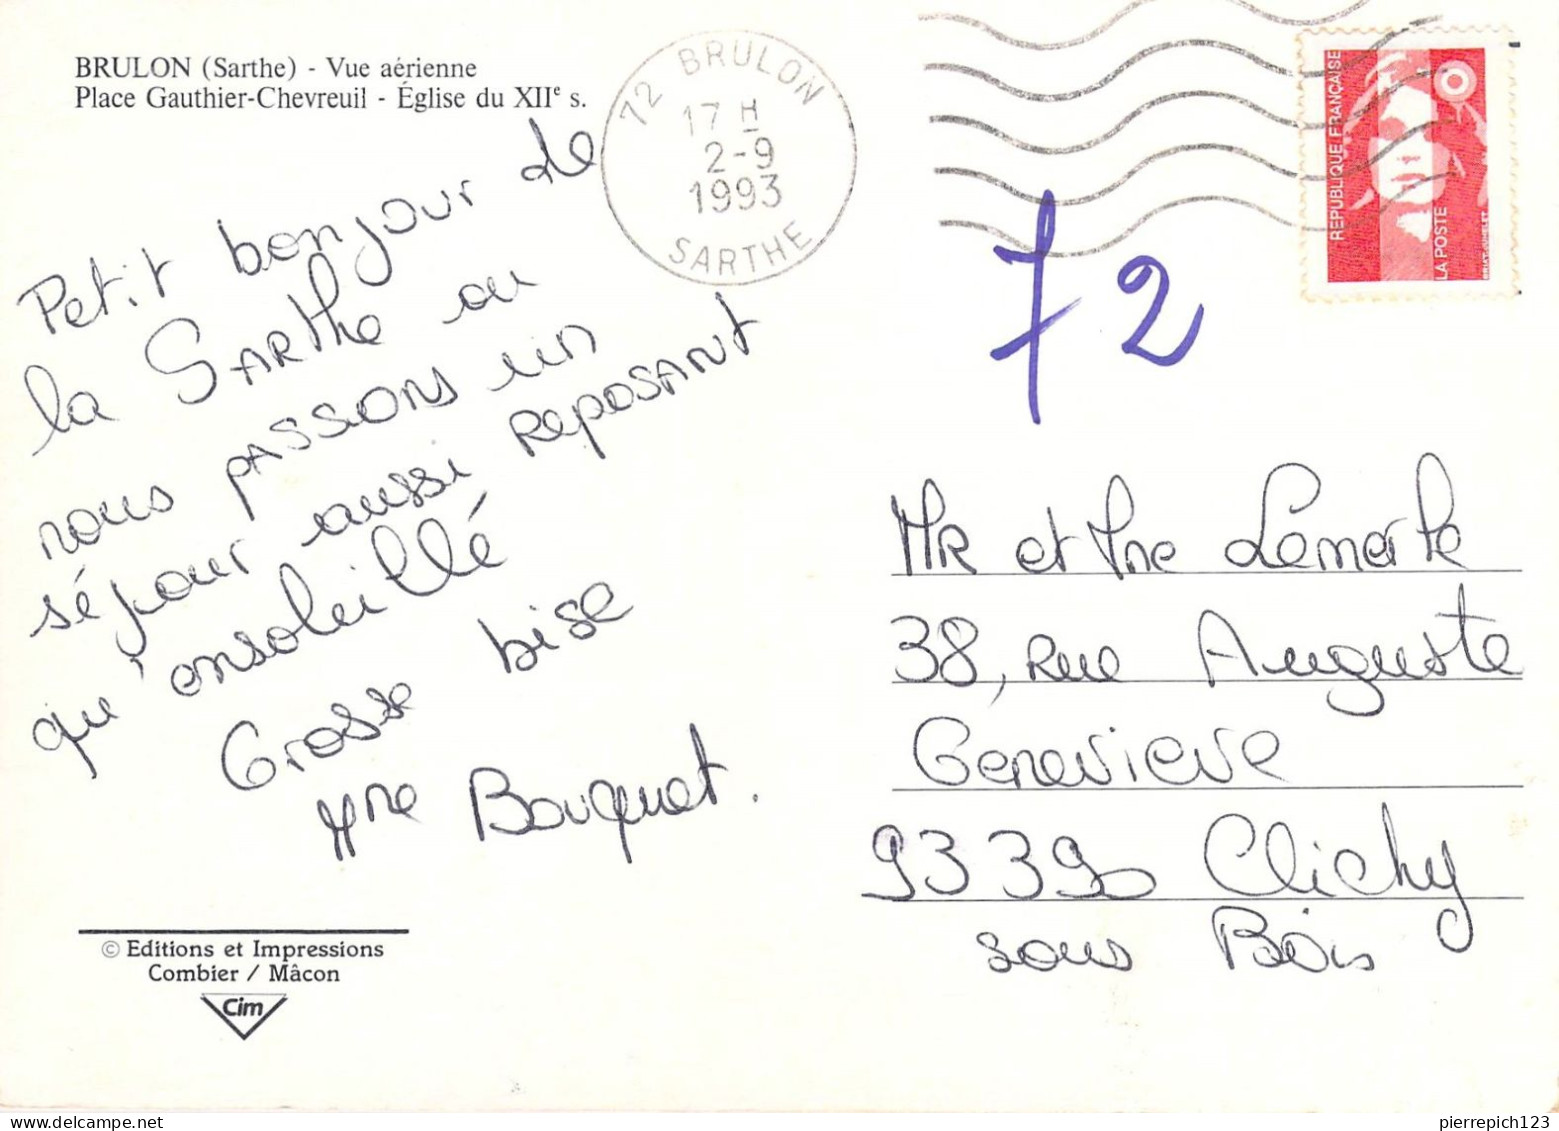 BRULON (Sarthe) - Vue aérienne
Place Gauthier-Chevreuil - Église du XIIe s.
72 BRULON
17 H
2-9
1993
SARTHE
REPUBLIQUE FRANÇAISE
LA POSTE
72
Petit bonjour de
la SARthe ou
nous pAssons un
séjour aussi ReposANt
qu'ensoleillé
Grosse bise
Mme Bouquet.
MR et Mme Lemerle
38, Rue Auguste
Genevieve
93390 Clichy
sous Bois
© Editions et Impressions
Combier / Mâcon
Cim
pierrepich123